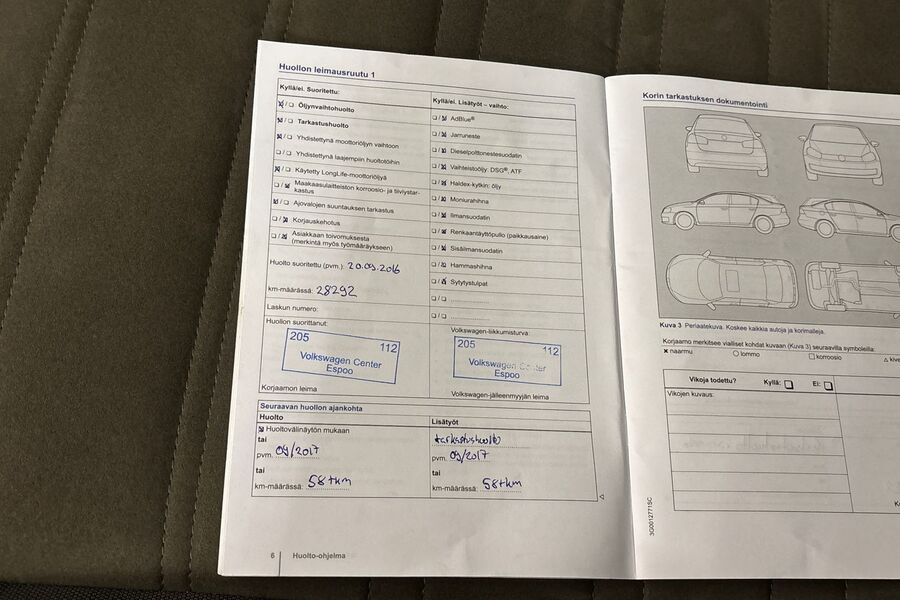 Huollon leimausruutu 1
Kyllä/ei. Suoritettu:
Öljynvaihtohuolto
Tarkastushuolto
Yhdistettynä moottoriöljyn vaihtoon
Yhdistettynä laajempiin huoltotöihin
Käytetty LongLife-moottoriöljyä
Maakaasulaitteiston korroosio- ja tiiviystar-
kastus
Ajovalojen suuntauksen tarkastus
Korjauskehotus
Asiakkaan toivomuksesta
(merkintä myös työmääräykseen)
Huolto suoritettu (pvm.): 20.09.2016
km-määrässä: 28292
Laskun numero:
Huollon suorittanut:
205
112
Volkswagen Center
Espoo
Korjaamon leima
Kyllä/ei. Lisätyöt – vaihto:
AdBlue®
Jarruneste
Dieselpolttonestesuodatin
Vaihteistoöljy: DSG®, ATF
Haldex-kytkin: öljy
Moniurahihna
Ilmansuodatin
Renkaantäyttöpullo (paikkausaine)
Sisäilmansuodatin
Hammashihna
Sytytystulpat
Volkswagen-liikkumisturva:
205
112
Volkswagen Center
Espoo
Volkswagen-jälleenmyyjän leima
Seuraavan huollon ajankohta
Huolto
Huoltovälinäytön mukaan
tai
pvm. 09/2017
tai
km-määrässä: 58tkm
Lisätyöt
tarkastushuolto
pvm. 09/2017
tai
km-määrässä: 58tkm
6
Huolto-ohjelma
Korin tarkastuksen dokumentointi
Kuva 3 Periaatekuva. Koskee kaikkia autoja ja korimalleja.
Korjaamo merkitsee vialliset kohdat kuvaan (Kuva 3) seuraavilla symboleilla:
naarmu
lommo
korroosio
Vikoja todettu?
Kyllä:
Ei:
Vikojen kuvaus:
3G0012771SC